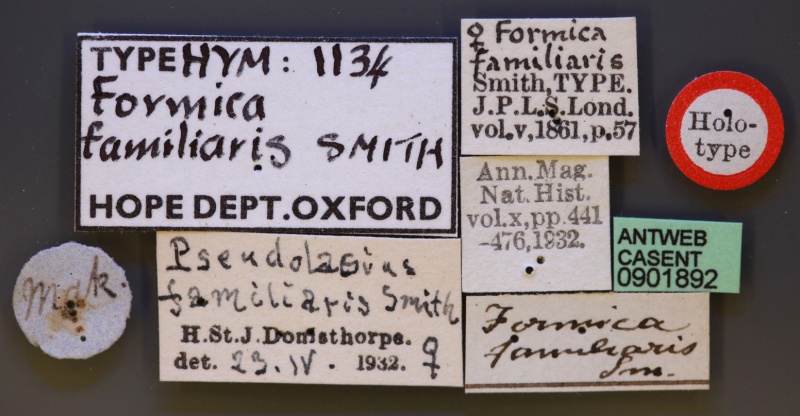 TYPE HYM: 1134
Formica
familiaris SMITH
HOPE DEPT. OXFORD
♀ Formica
familiaris
Smith, TYPE.
J.P.L.S. Lond.
vol.v, 1861, p.57
Holo-
type
Ann. Mag.
Nat. Hist.
vol.x, pp.441
-476, 1932.
ANTWEB
CASENT
0901892
Mak.
Pseudolasius
familiaris Smith
H. St. J. Donisthorpe.
det. 23.IV. 1932. ♀
Formica
familiaris
Sm.